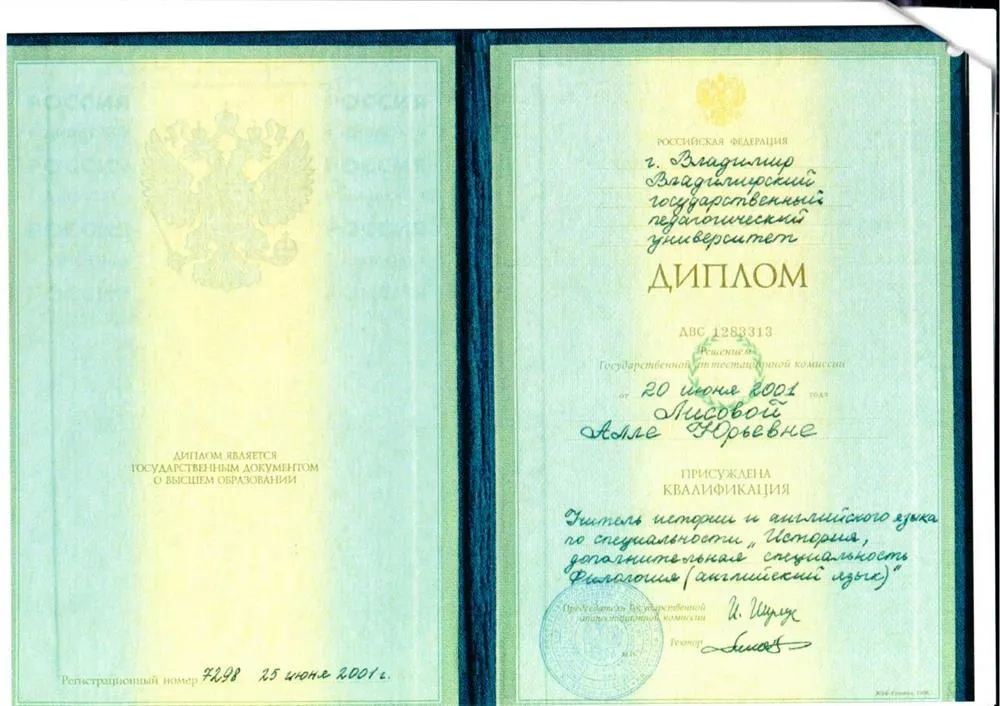 РОССИЯ РОССИЯ
РОССИЯ РОССИЯ
РОССИЯ РОССИЯ
РОССИЯ РОССИЯ
ДИПЛОМ ЯВЛЯЕТСЯ
ГОСУДАРСТВЕННЫМ ДОКУМЕНТОМ
О ВЫСШЕМ ОБРАЗОВАНИИ
Регистрационный номер 7298 25 июня 2001 г.
РОССИЙСКАЯ ФЕДЕРАЦИЯ
г. Владимир
Владимирский
государственный
педагогический
университет
ДИПЛОМ
ДВС 1283313
Решением
Государственной аттестационной комиссии
от 20 июня 2001 года
Лисовой
Алле Юрьевне
ПРИСУЖДЕНА
КВАЛИФИКАЦИЯ
Учитель истории и английского языка
по специальности „История,
дополнительная специальность
Филология (английский язык)"
Председатель Государственной
аттестационной комиссии
Ректор
М.П.